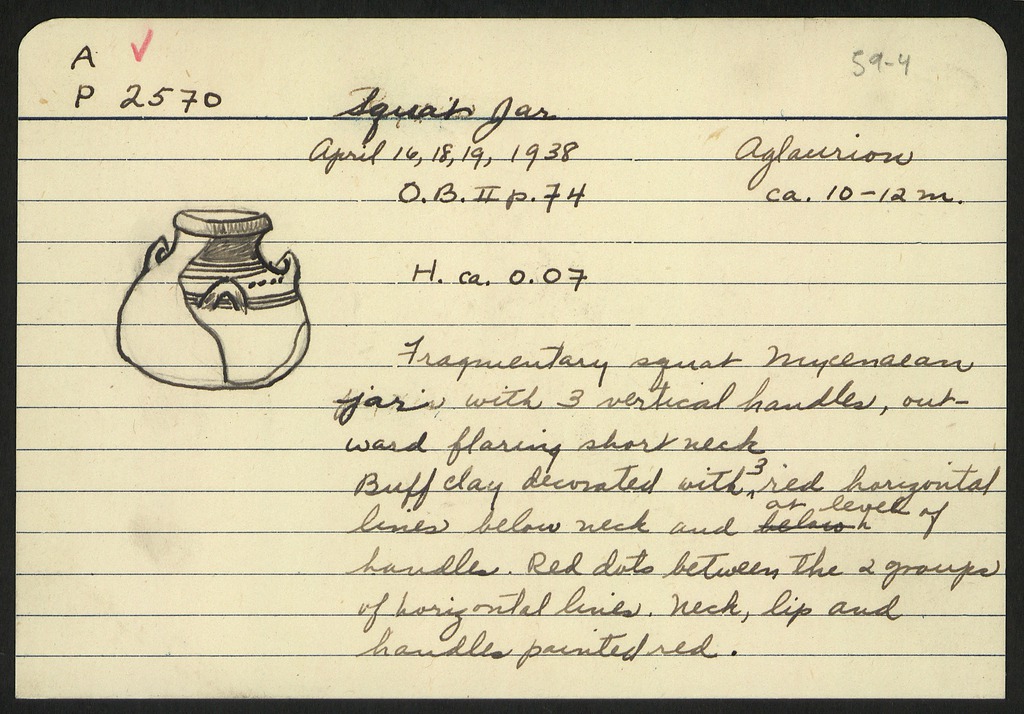 A ✓
59-4
P 2570
Squat Jar
April 16, 18, 19, 1938
Aglaurion
O.B. II p. 74
ca. 10-12 m.
H. ca. 0.07
Fragmentary squat Mycenaean
jar with 3 vertical handles, out-
ward flaring short neck
Buff clay decorated with 3 red horizontal
lines below neck and below at level of
handles. Red dots between the 2 groups
of horizontal lines. Neck, lip and
handles painted red.